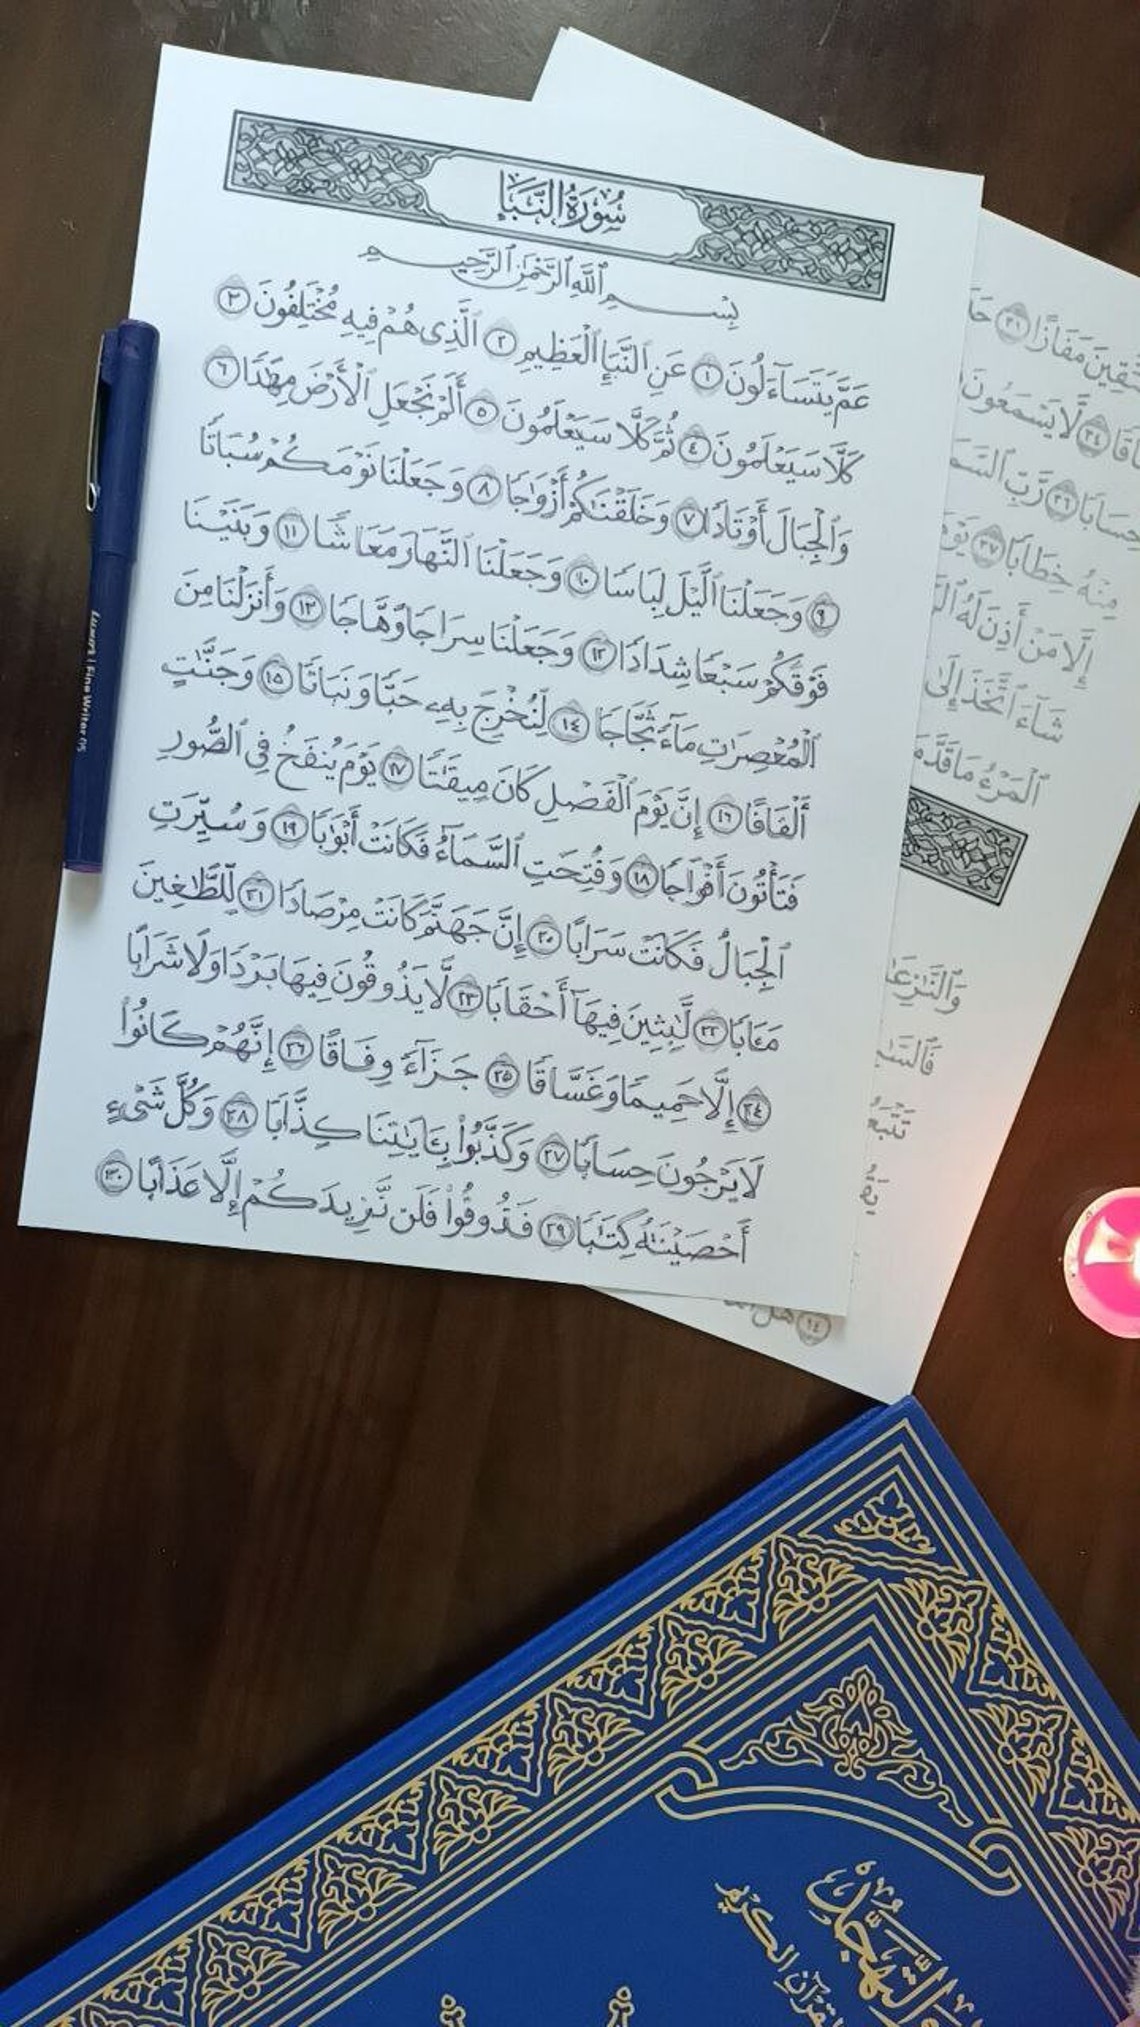 سُورَةُ النَّبَإِ
بِسْمِ ٱللَّهِ ٱلرَّحْمَٰنِ ٱلرَّحِيمِ
عَمَّ يَتَسَآءَلُونَ ١ عَنِ ٱلنَّبَإِ ٱلْعَظِيمِ ٢ ٱلَّذِى هُمْ فِيهِ مُخْتَلِفُونَ ٣
كَلَّا سَيَعْلَمُونَ ٤ ثُمَّ كَلَّا سَيَعْلَمُونَ ٥ أَلَمْ نَجْعَلِ ٱلْأَرْضَ مِهَٰدًا ٦
وَٱلْجِبَالَ أَوْتَادًا ٧ وَخَلَقْنَٰكُمْ أَزْوَٰجًا ٨ وَجَعَلْنَا نَوْمَكُمْ سُبَاتًا
٩ وَجَعَلْنَا ٱلَّيْلَ لِبَاسًا ١٠ وَجَعَلْنَا ٱلنَّهَارَ مَعَاشًا ١١ وَبَنَيْنَا
فَوْقَكُمْ سَبْعًا شِدَادًا ١٢ وَجَعَلْنَا سِرَاجًا وَهَّاجًا ١٣ وَأَنزَلْنَا مِنَ
ٱلْمُعْصِرَٰتِ مَآءً ثَجَّاجًا ١٤ لِّنُخْرِجَ بِهِۦ حَبًّا وَنَبَاتًا ١٥ وَجَنَّٰتٍ
أَلْفَافًا ١٦ إِنَّ يَوْمَ ٱلْفَصْلِ كَانَ مِيقَٰتًا ١٧ يَوْمَ يُنفَخُ فِى ٱلصُّورِ
فَتَأْتُونَ أَفْوَاجًا ١٨ وَفُتِحَتِ ٱلسَّمَآءُ فَكَانَتْ أَبْوَٰبًا ١٩ وَسُيِّرَتِ
ٱلْجِبَالُ فَكَانَتْ سَرَابًا ٢٠ إِنَّ جَهَنَّمَ كَانَتْ مِرْصَادًا ٢١ لِّلطَّٰغِينَ
مَـَٔابًا ٢٢ لَّٰبِثِينَ فِيهَآ أَحْقَابًا ٢٣ لَّا يَذُوقُونَ فِيهَا بَرْدًا وَلَا شَرَابًا
٢٤ إِلَّا حَمِيمًا وَغَسَّاقًا ٢٥ جَزَآءً وِفَاقًا ٢٦ إِنَّهُمْ كَانُوا۟
لَا يَرْجُونَ حِسَابًا ٢٧ وَكَذَّبُوا۟ بِـَٔايَٰتِنَا كِذَّابًا ٢٨ وَكُلَّ شَىْءٍ
أَحْصَيْنَٰهُ كِتَٰبًا ٢٩ فَذُوقُوا۟ فَلَن نَّزِيدَكُمْ إِلَّا عَذَابًا ٣٠
مَفَازًا ٣١
٣٤ لَّا يَسْمَعُونَ
حِسَابًا ٣٦ رَّبِّ
مِنْهُ خِطَابًا ٣٧
إِلَّا مَنْ أَذِنَ لَهُ
شَآءَ ٱتَّخَذَ إِلَىٰ
ٱلْمَرْءُ مَا قَدَّمَتْ
١٤
Luxor | Fine Writer 05
التهجد
القرآن الكريم